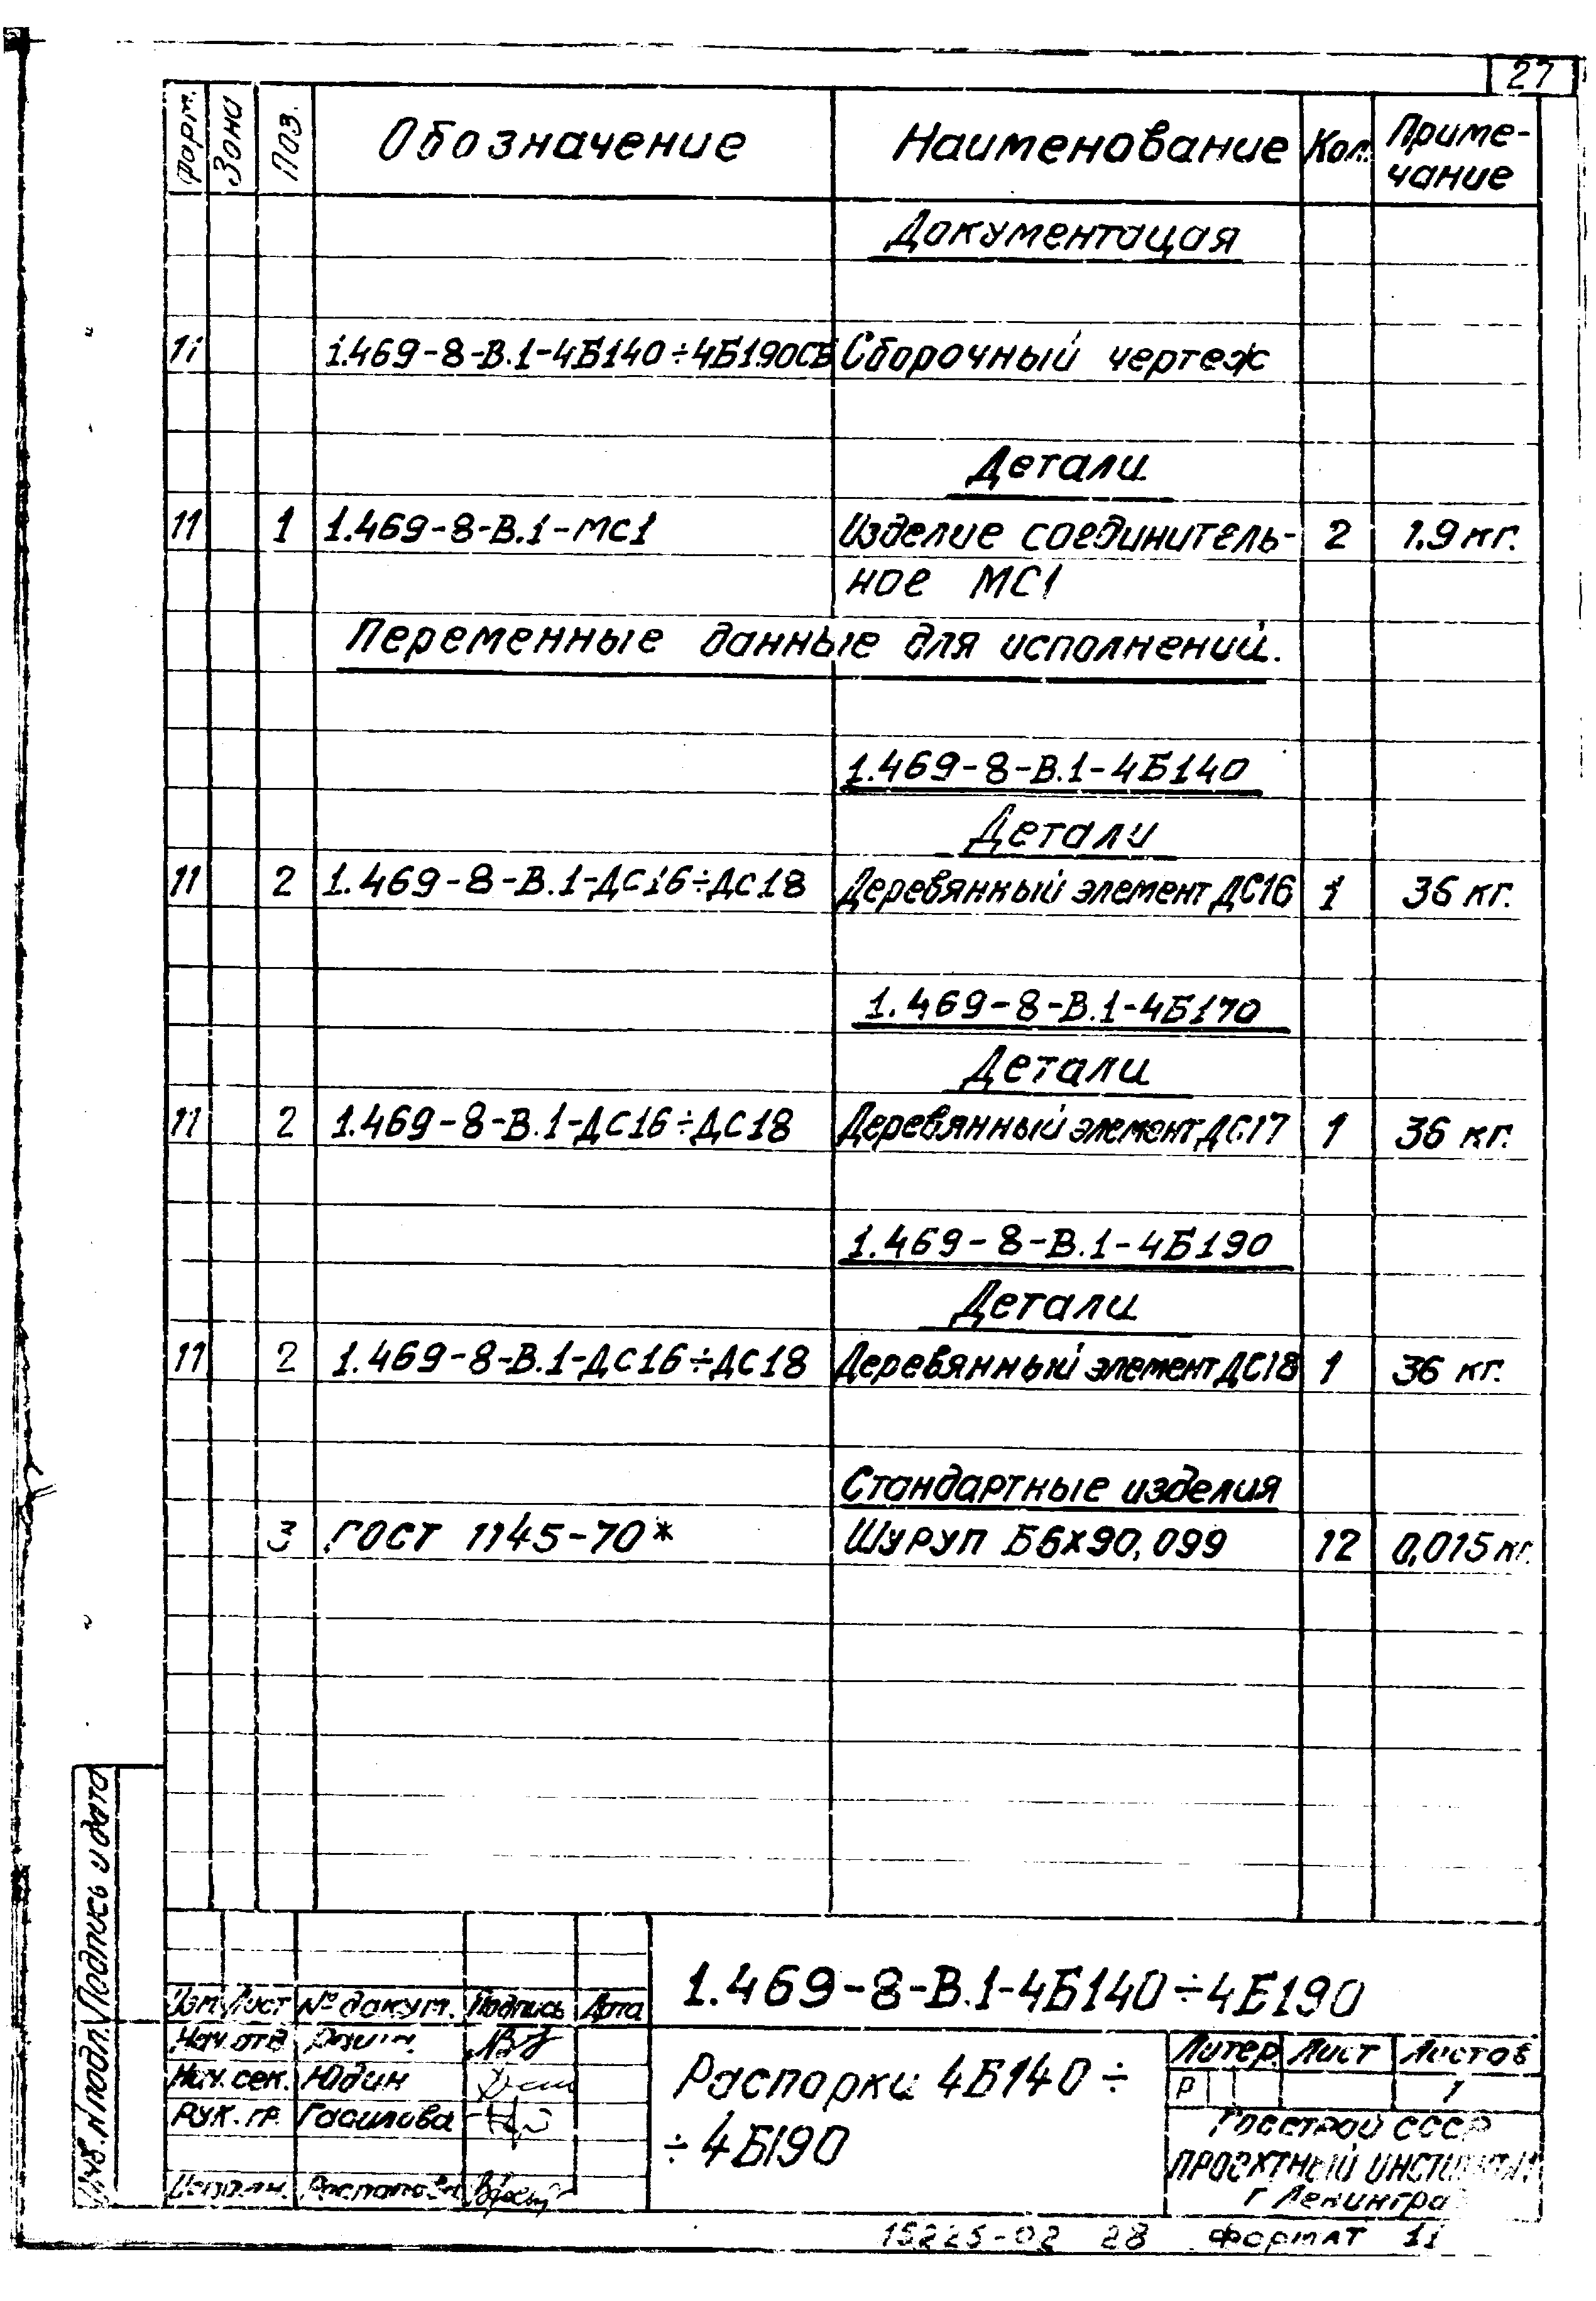 27
Форм. Зона Поз. Обозначение Наименование Кол. Приме-
чание
Документация
11 1.469-8-В.1-4Б140÷4Б190СБ Сборочный чертеж
Детали
11 1 1.469-8-В.1-МС1 Изделие соединитель- 2 1.9 кг.
ное МС1
Переменные данные для исполнений.
1.469-8-В.1-4Б140
Детали
11 2 1.469-8-В.1-ДС16÷ДС18 Деревянный элемент ДС16 1 36 кг.
1.469-8-В.1-4Б170
Детали
11 2 1.469-8-В.1-ДС16÷ДС18 Деревянный элемент ДС17 1 36 кг.
1.469-8-В.1-4Б190
Детали
11 2 1.469-8-В.1-ДС16÷ДС18 Деревянный элемент ДС18 1 36 кг.
Стандартные изделия
3 ГОСТ 1145-70* Шуруп Б6х90,099 12 0,015 кг.
Инв. N подл. Подпись и дата
Изм Лист № докум. Подпись Дата
1.469-8-В.1-4Б140÷4Б190
Нач. отд
Нач. сек. Юдин
Рук. гр. Гасилова
Исполн.
Распорки 4Б140÷
÷4Б190
Литер. Лист Листов
Р 1
Госстрой СССР
ПРОЕКТНЫЙ ИНСТИТУТ
г Ленинград
15225-02 28 Формат 11